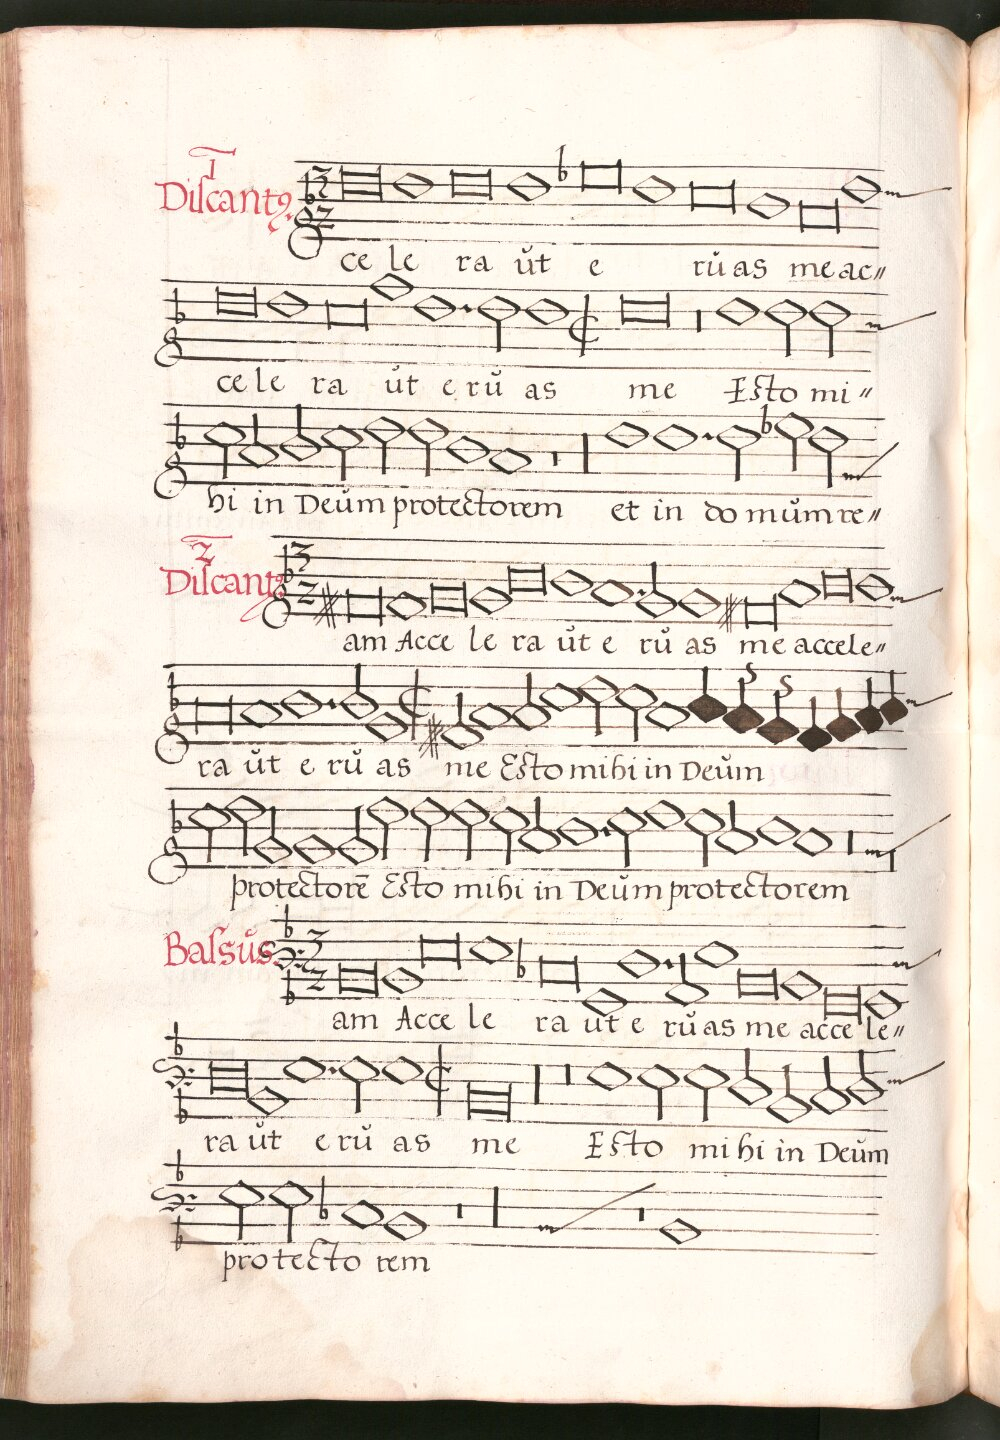 1
Discantꝯ. 3 2
ce le ra ŭt e rŭ as me ac〃
ce le ra ŭt e rŭ as me Esto mi〃
hi in Deŭm protectorem et in do mŭm re〃
2
Discantꝯ 3 2
am Acce le ra ŭt e rŭ as me accele〃
ra ŭt e rŭ as me Esto mihi in Deŭm
protectorē Esto mihi in Deŭm protectorem
Bassŭs. 3 2
am Acce le ra ut e rŭ as me acce le〃
ra ŭt e rŭ as me Esto mi hi in Deŭm
pro tecto rem